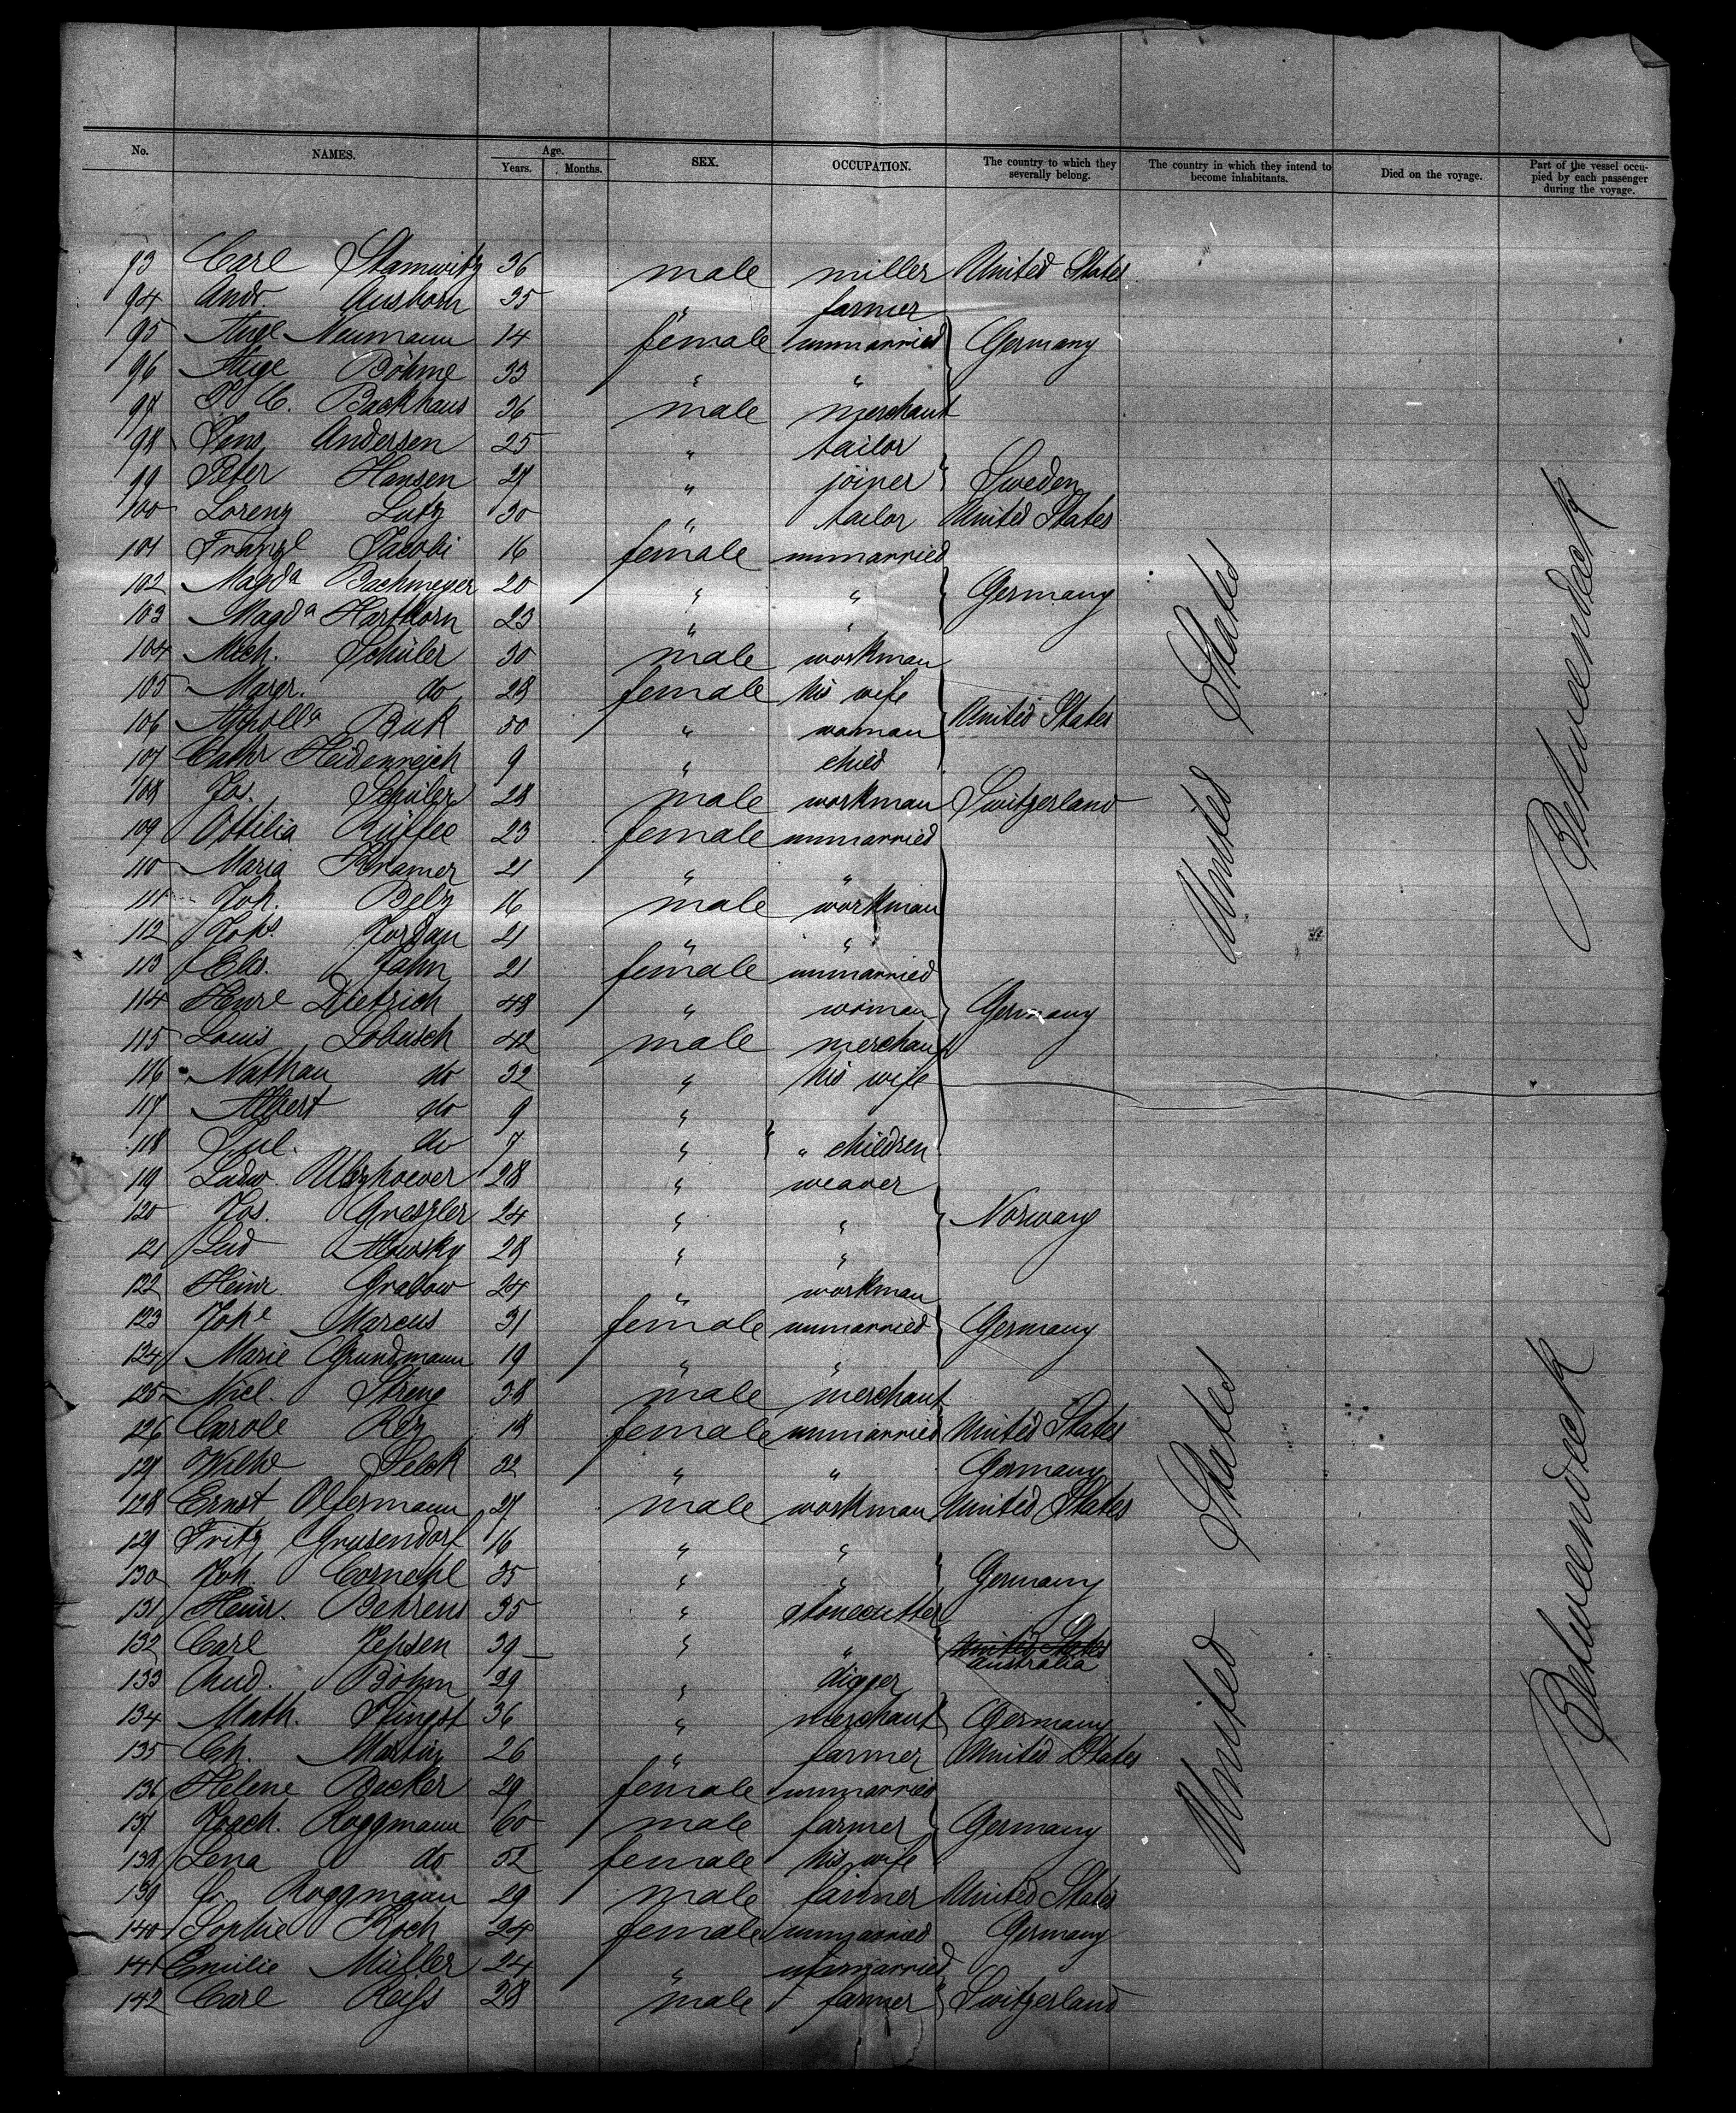 No. NAMES. Age. Years. Months. SEX. OCCUPATION. The country to which they severally belong. The country in which they intend to become inhabitants. Died on the voyage. Part of the vessel occupied by each passenger during the voyage.
93 Carl Stamwitz 36 male miller United States
94 Andr. Ausborn 35 " farmer
95 Auge Neumann 14 female unmarried Germany
96 Auge Böhme 33 " "
97 J. C. Backhaus 36 male merchant
98 Jens Andersen 25 " tailor
99 Peter Hansen 27 " joiner Sweden
100 Lorenz Lutz 30 " tailor United States
101 Franzl Jacobi 16 female unmarried
102 Magda Bachmeyer 20 " " Germany
103 Magda Harthorn 23 " "
104 Mich. Schüler 30 male workman
105 Margr. do 28 female his wife
106 Apolla Buk 50 " woman United States
107 Cathr Heidenreich 9 " child
108 Jos. Schüler 28 male workman Switzerland
109 Ottilia Rüffec 23 female unmarried
110 Maria Kramer 21 " "
111 Joh. Belz 16 male workman
112 Johs Jordan 21 " "
113 Elis. Jahn 21 female unmarried
114 Henre Dietrich 48 " woman Germany
115 Louis Lobusch 42 male merchant
116 Nathan do 32 " his wife
117 Albert do 9 "
118 Jul. do 7 " " children
119 Ludw. 28 " weaver
120 Jos. Greszler 24 " " Norway
121 Lud 28 " "
122 Heinr. Grabow 24 " workman
123 Johe Marcus 31 female unmarried Germany
124 Marie Grundmann 19 " "
125 Nicl. Streng 38 male merchant
126 Carole Rez 18 female unmarried United States
127 Wilhe Selck 32 " " Germany
128 Ernst Olfermann 27 male workman United States
129 Fritz Grusendorf 16 " "
130 Joh. Cornehl 35 " " Germany
131 Heinr. Behrens 35 " stonecutter
132 Carl Jepsen 39 " " United States Australia
133 Aud. Böhm 29 " digger
134 Math. Pfingst 36 " merchant Germany
135 Ch. Martin 26 " farmer United States
136 Helene Becker 29 female unmarried
137 Joach. Roggmann 60 male farmer Germany
138 Lena do 52 female his wife
139 Roggmann 29 male farmer United States
140 Sophie Koch 24 female unmarried Germany
141 Emilie Müller 24 " unmarried
142 Carl Reiss 28 male farmer Switzerland
United States
Betweendeck
United States
Betweendeck